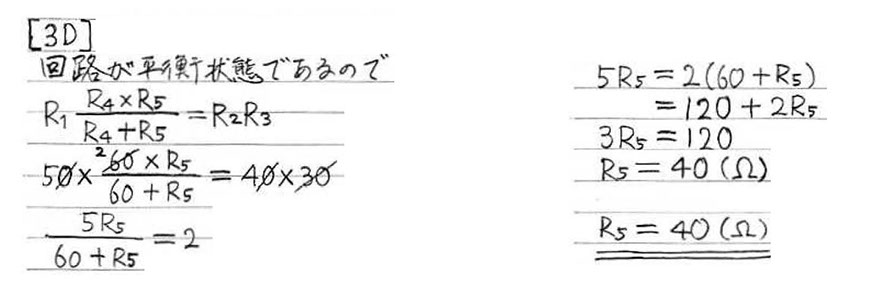 [3D]
回路が平衡状態であるので
R₁ (R₄×R₅)/(R₄+R₅) = R₂R₃
50× (²60×R₅)/(60+R₅) = 40×30
5R₅/(60+R₅) = 2
5R₅ = 2(60+R₅)
= 120 + 2R₅
3R₅ = 120
R₅ = 40 (Ω)
R₅ = 40 (Ω)